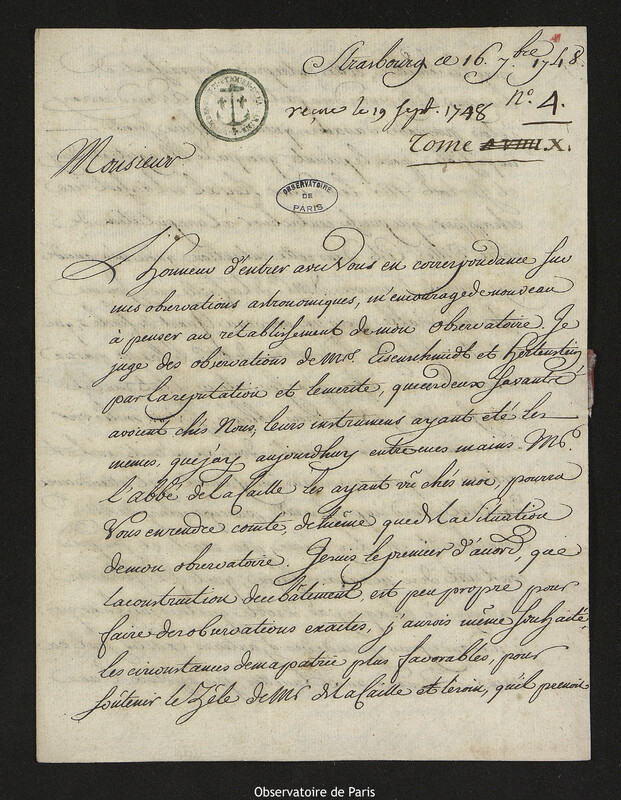 Strasbourg ce 16. 7.bre 1748.
reçue le 19 Sept. 1748 N.o 4.
Tome X.
Monsieur
OBSERVATOIRE
DE
PARIS
L'honneur d'entrer avec Vous en correspondance sur
mes observations astronomiques, m'encourage de nouveau
à penser au rétablissement de mon observatoire. Je
juge des observations de Mrs. Eisenschmidt et Hertenstein
par la reputation et le merite, que ces deux savants
avoient chés Nous, leurs instrumens ayant eté les
memes, que j'ay aujourdhuy entre mes mains. Mr.
l'abbé de la Caille les ayant vû chés moi, pourra
Vous en rendre comte, de même que de la Situation
de mon observatoire. Je suis le premier d'avord, que
la construction de ce bâtement est peu propre pour
faire des observations exactes, j'aurois même souhaité
les circonstances de ma patrie plus favorables, pour
soûtenir le Zéle de Mr de la Caille et le soin, qu'il prenoit
Observatoire de Paris